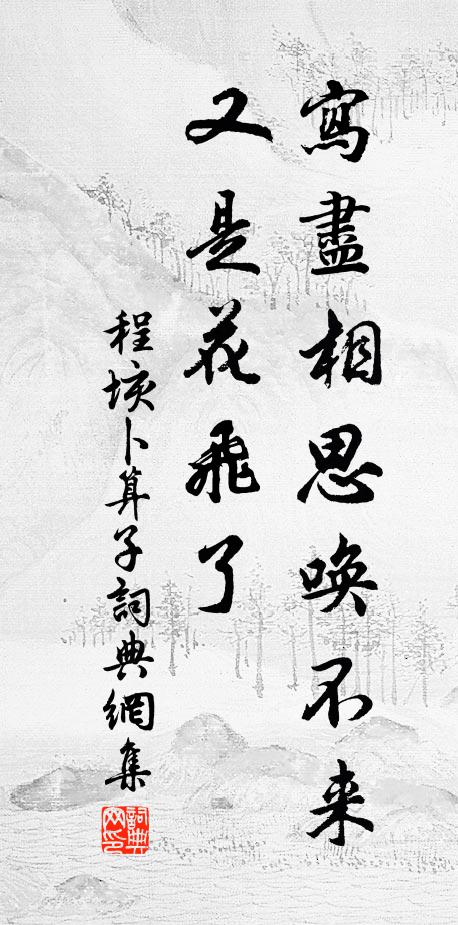 寫盡相思唤不来
又是花飛了
程垓卜算子詞典網集
詞典網印